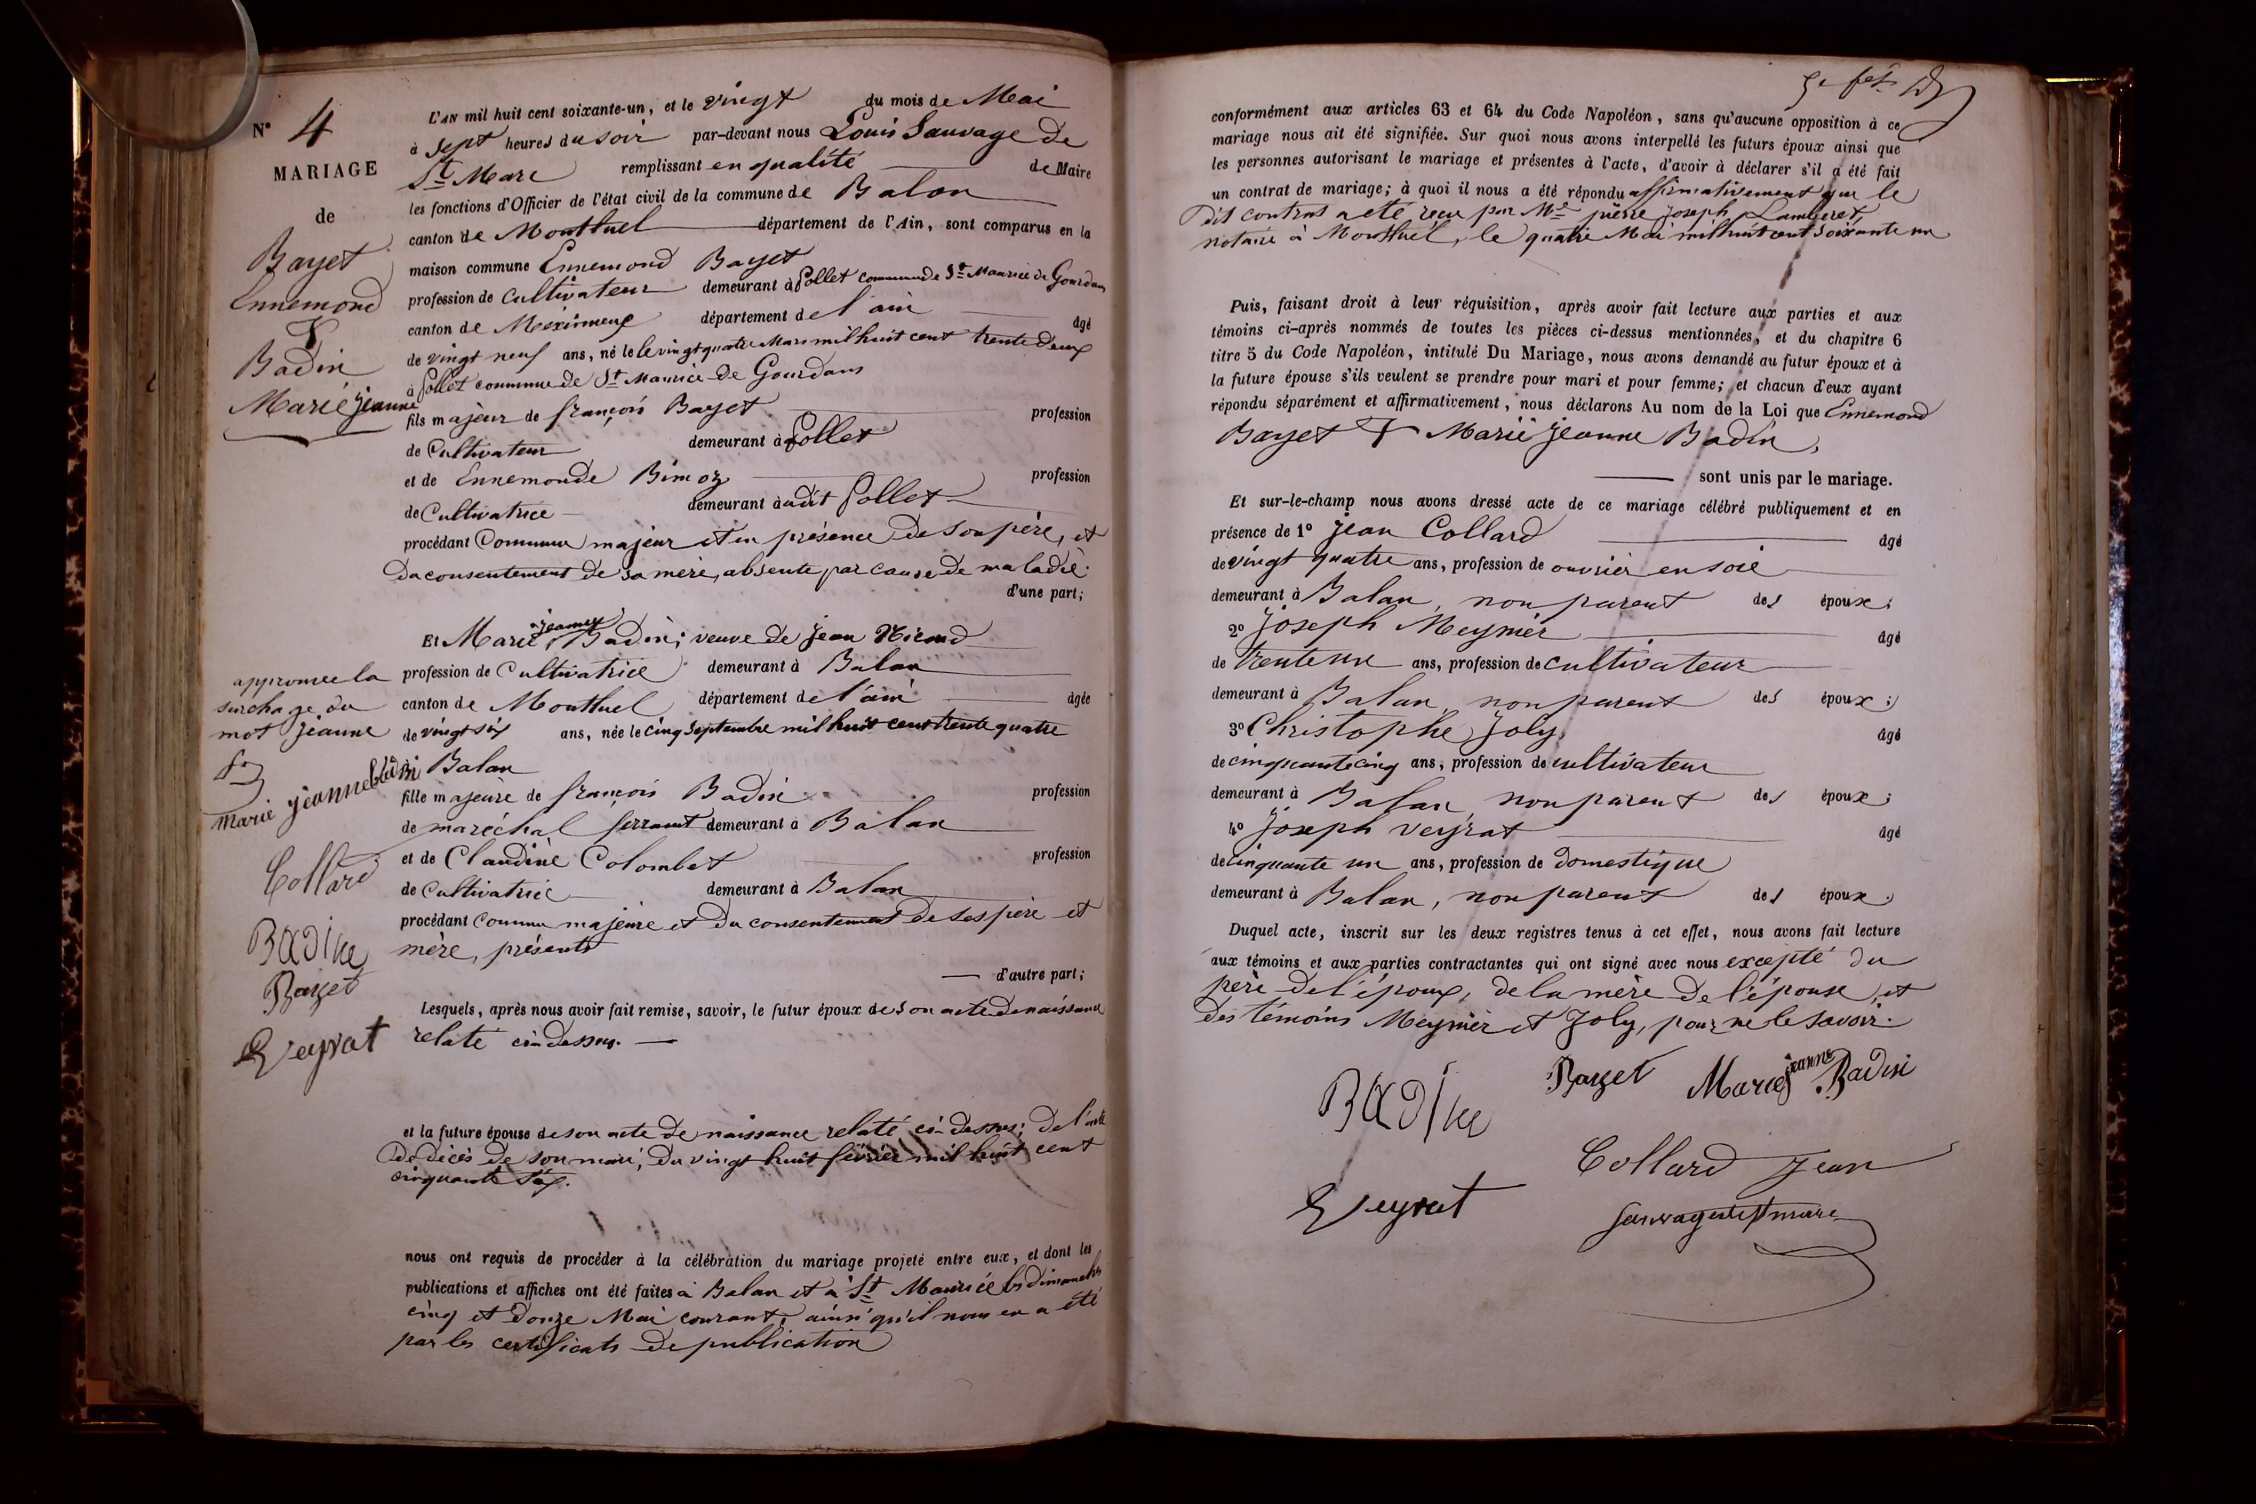 N° 4
MARIAGE
de
Bayet
Ennemond
&
Badin
Marie jeanne
L'AN mil huit cent soixante-un, et le vingt du mois de Mai
à sept heures du soir par-devant nous Louis Sauvage de
St Marc remplissant en qualité de Maire
les fonctions d'Officier de l'état civil de la commune de Balan
canton de Montluel département de l'Ain, sont comparus en la
maison commune Ennemond Bayet
profession de cultivateur demeurant à Pollet commune de St Maurice de Gourdans
canton de Meximieux département de l'ain âgé
de vingt neuf ans, né le le vingt quatre Mars mil huit cent trente deux
à Pollet commune de St Maurice de Gourdans
fils majeur de françois Bayet profession
de Cultivateur demeurant à Pollet
et de Ennemonde Bimoz profession
de Cultivatrice demeurant à dit Pollet
procédant Comme majeur et en présence de son père, et
du consentement de sa mère, absente par cause de maladie.
d'une part;
Et Marie jeanne Badin; veuve de Jean Nicoud
profession de Cultivatrice demeurant à Balan
canton de Montluel département de l'ain âgée
de vingt six ans, née le cinq Septembre mil huit cent trente quatre
à Balan
fille majeure de françois Badin profession
de maréchal ferrant demeurant à Balan
et de Claudine Colombet profession
de Cultivatrice demeurant à Balan
procédant comme majeure et du consentement de ses père et
mère, présents
d'autre part;
Lesquels, après nous avoir fait remise, savoir, le futur époux de son acte de naissance
relaté ci-dessus.
et la future épouse de son acte de naissance relaté ci-dessus; de l'acte
de décès de son mari, du vingt huit février mil huit cent
cinquante six.
nous ont requis de procéder à la célébration du mariage projeté entre eux, et dont les
publications et affiches ont été faites à Balan et à St Maurice les dimanches
cinq et douze Mai courant, ainsi qu'il nous en a été
par les certificats de publication
approuvée la
surchage du
mot jeanne
marie jeanne badin
Collard
Badin
Bayet
Veyrat
conformément aux articles 63 et 64 du Code Napoléon, sans qu'aucune opposition à ce
mariage nous ait été signifiée. Sur quoi nous avons interpellé les futurs époux ainsi que
les personnes autorisant le mariage et présentes à l'acte, d'avoir à déclarer s'il a été fait
un contrat de mariage; à quoi il nous a été répondu affirmativement que le
dit contrat a été reçu par Me pierre Joseph Lamberet,
notaire à Montluel, le quatre Mai mil huit cent soixante un
Puis, faisant droit à leur réquisition, après avoir fait lecture aux parties et aux
témoins ci-après nommés de toutes les pièces ci-dessus mentionnées, et du chapitre 6
titre 5 du Code Napoléon, intitulé Du Mariage, nous avons demandé au futur époux et à
la future épouse s'ils veulent se prendre pour mari et pour femme; et chacun d'eux ayant
répondu séparément et affirmativement, nous déclarons Au nom de la Loi que Ennemond
Bayet & Marie jeanne Badin,
sont unis par le mariage.
Et sur-le-champ nous avons dressé acte de ce mariage célébré publiquement et en
présence de 1° Jean Collard âgé
de vingt quatre ans, profession de ouvrier en soie
demeurant à Balan, non parent des époux;
2° Joseph Meynier âgé
de trente un ans, profession de cultivateur
demeurant à Balan, non parent des époux;
3° Christophe Joly, âgé
de cinquante cinq ans, profession de cultivateur
demeurant à Balan, non parent des époux;
4° Joseph veyrat âgé
de cinquante un ans, profession de domestique
demeurant à Balan, non parent des époux.
Duquel acte, inscrit sur les deux registres tenus à cet effet, nous avons fait lecture
aux témoins et aux parties contractantes qui ont signé avec nous excepté du
père de l'époux, de la mère de l'épouse, et
des témoins Meynier et Joly, pour ne le savoir.
Badin
Bayet
Marie jeanne Badin
Collard Jean
Veyrat
Sauvage de St marc